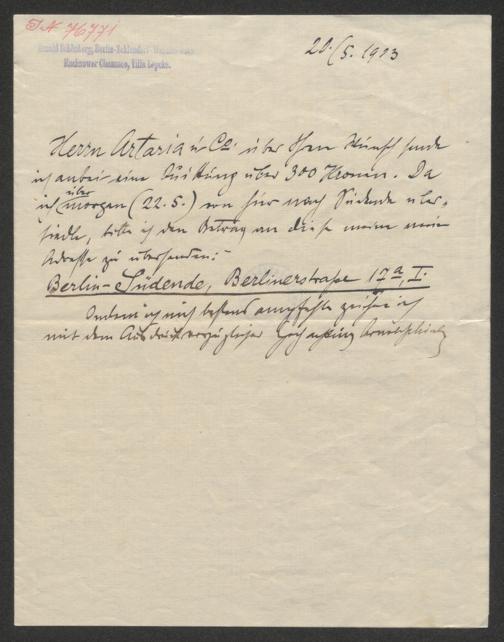 I.N. 76771
Arnold Schönberg, Berlin-Zehlendorf-Wannseebahn
Machnower Chaussee, Villa Lepcke.
20./5. 1913
Herrn Artaria u Co. über Ihren Wunsch sende
ich anbei eine Quittung über 300 Kronen. Da
ich übermorgen (22.5.) von hier nach Südende über-
siedle, bitte ich den Betrag an diese meine neue
Adresse zu übersenden:
Berlin-Südende, Berlinerstraße 17a, I.
Indem ich mich bestens empfehle zeichne ich
mit dem Ausdruck vorzüglicher Hochachtung Arnold Schönberg